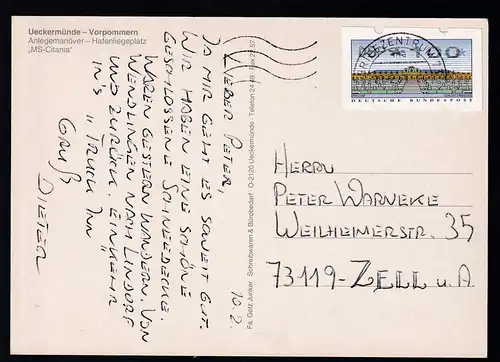 Ueckermünde – Vorpommern
Anlegemanöver – Hafenliegeplatz
„MS-Citania"
10.2.
LIEBER PETER,
DA MIR GEHT ES SOWEIT GUT.
WIR HABEN EINE SCHÖNE
GESCHLOSSENE SCHNEEDECKE.
WAREN GESTERN WANDERN. VON
WENDLINGEN NACH LINDORF
UND ZURÜCK. EINKEHR
IN'S „TRUCK INN"
GRUß
DIETER
Fa. Götz Junker Schreibwaren & Bürobedarf O-2120 Ueckermünde Telefon 24 49
BRIEFZENTRUM
DEUTSCHE BUNDESPOST
HERRN
PETER WARNEKE
WEILHEIMERSTR. 35
73119-ZELL u. A.